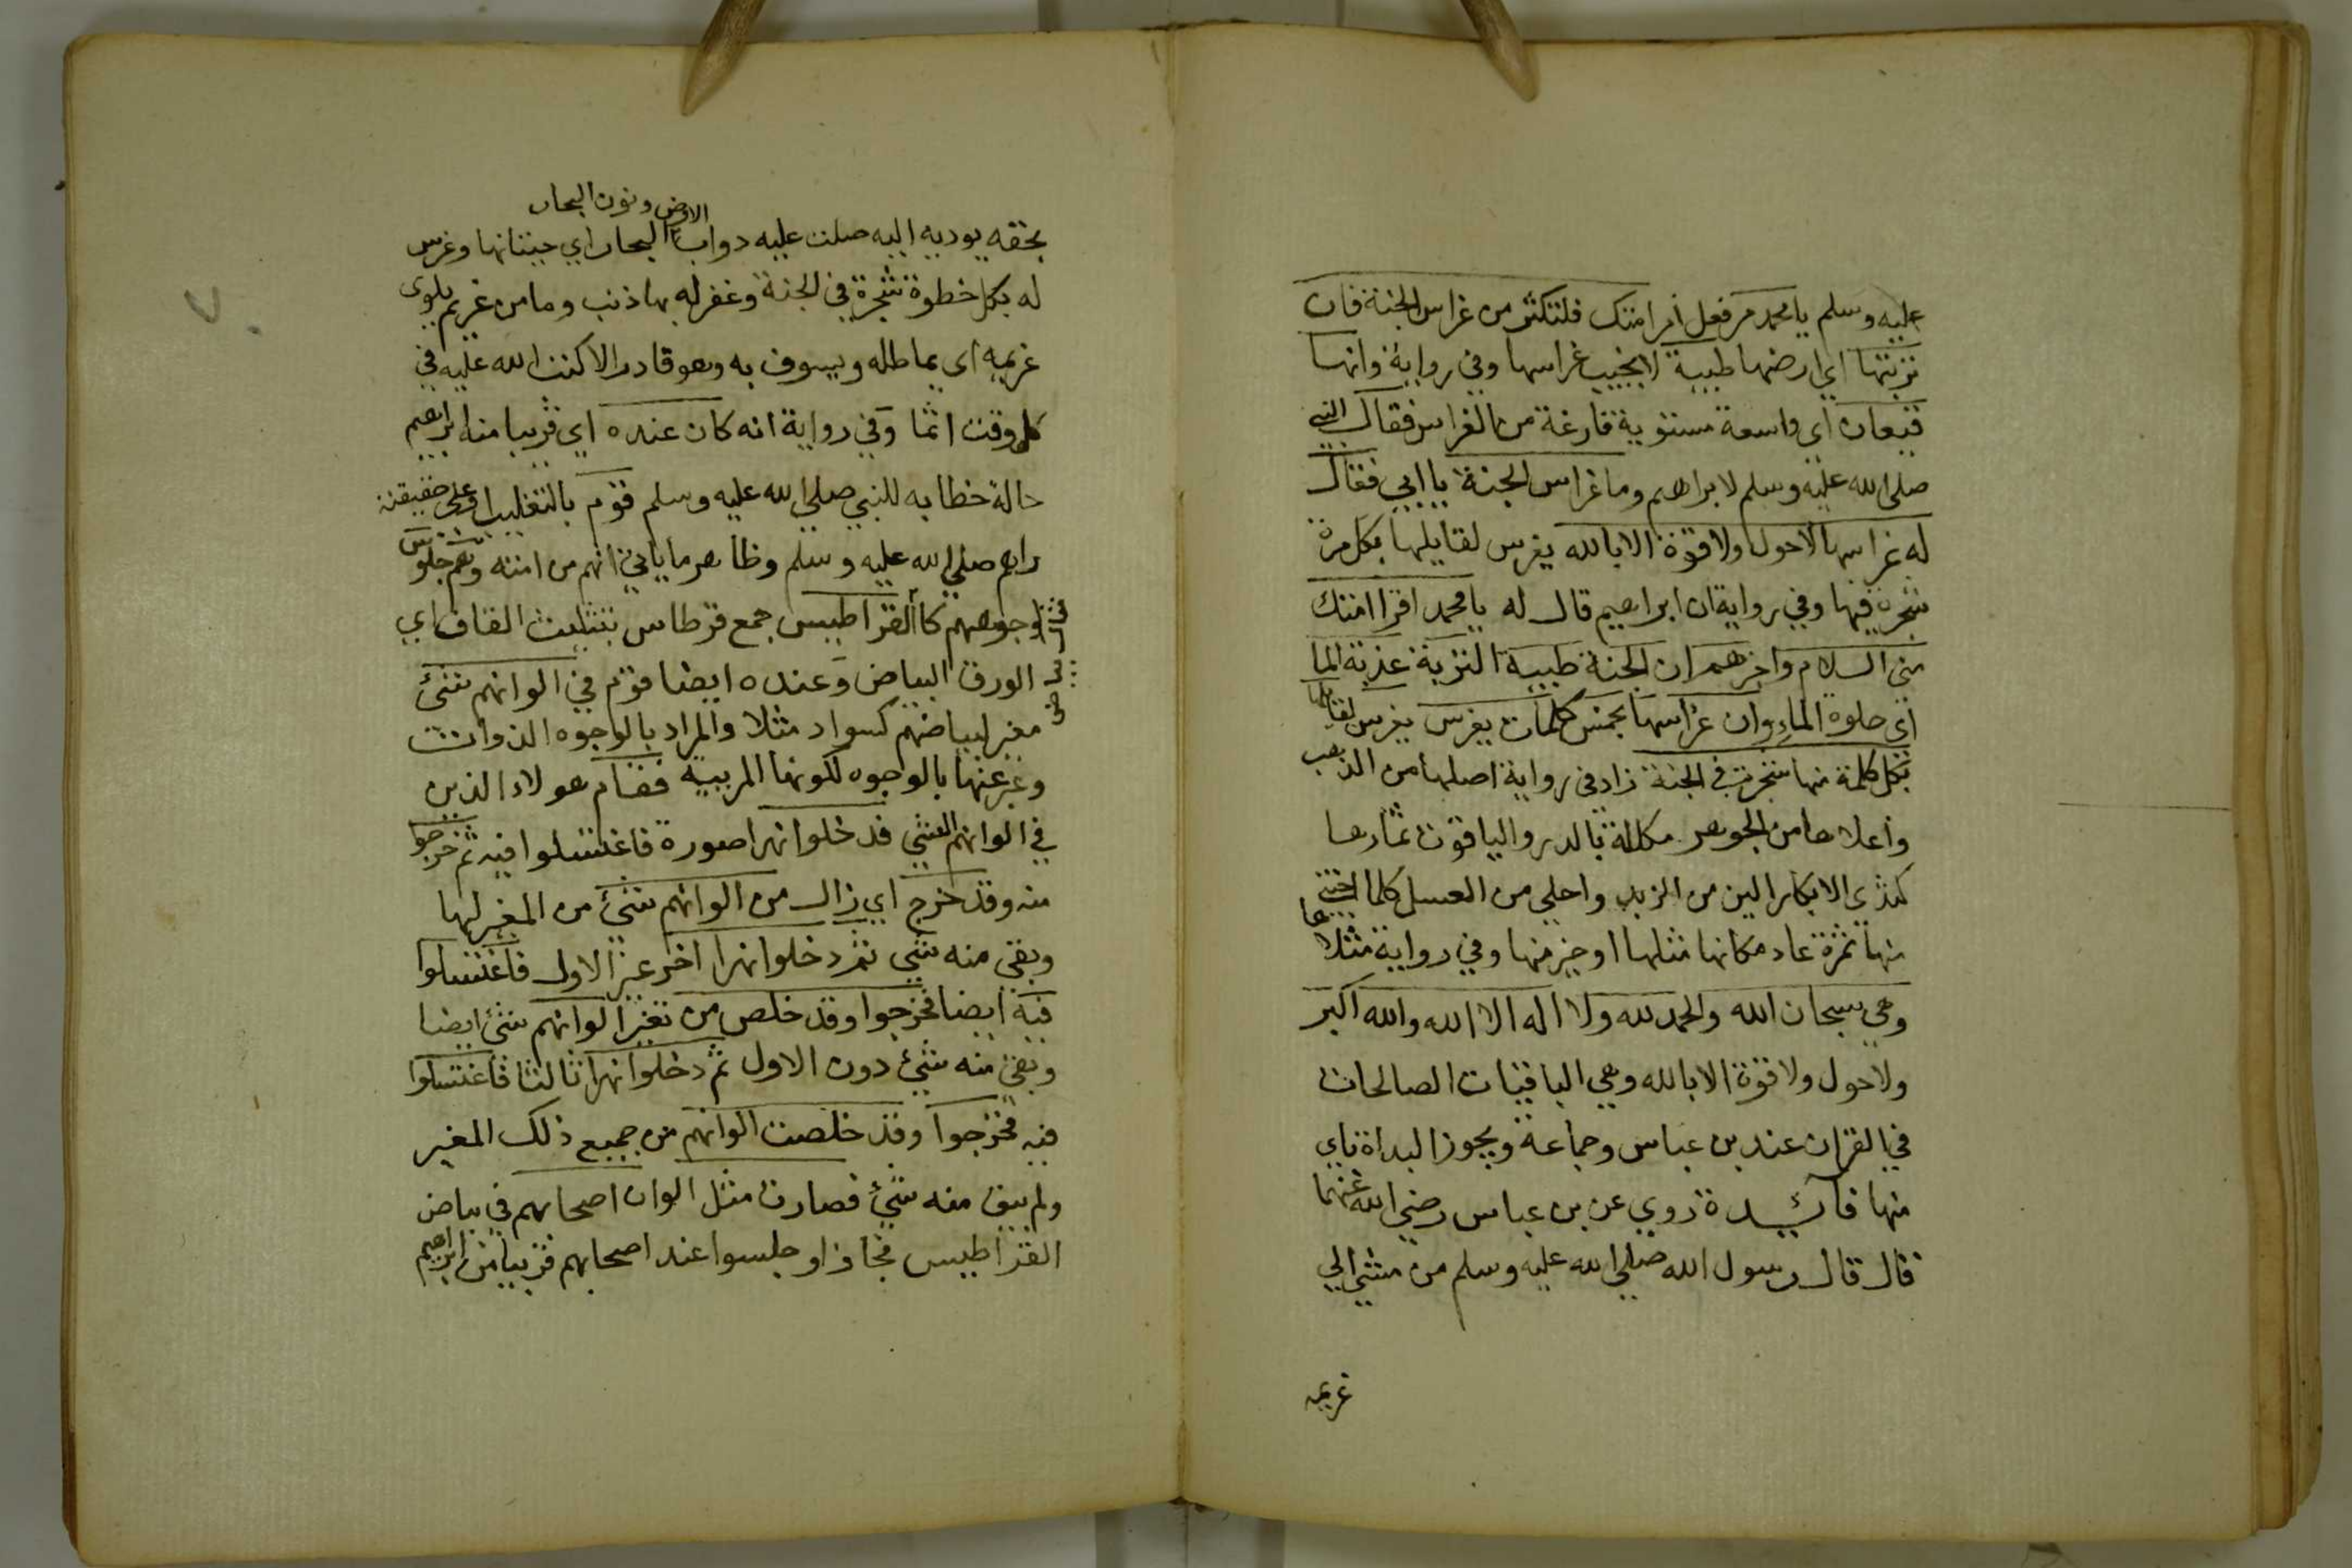 عليه وسلم يا محمد مر فعل أمر امتك فلتكثر من غراس الجنة فان
تربتها اي ارضها طيبة لا يخيب غراسها وفي رواية وانها
قيعان اي واسعة مستوية فارغة من الغراس فقال النبي
صلى الله عليه وسلم لابراهيم وما غراس الجنة يا ابي فقال
له غراسها لاحول ولا قوة الا بالله يغرس لقايلها بكل مرة
شجرة فيها وفي رواية ان ابراهيم قال له يا محمد اقرا امتك
مني السلام واخبرهم ان الجنة طيبة التربة عذبة الما
اي حلوة الماء وان غراسها بخمس كلمات يغرس يغرس لقايلها
بكل كلمة منها شجرة في الجنة زاد في رواية اصلها من الذهب
واعلاها من الجوهر مكللة بالدر والياقوت ثمارها
كثدي الابكار الين من الزبد واحلى من العسل كلما اجتني
منها ثمرة عاد مكانها مثلها او خير منها وفي رواية مثلا
وهي سبحان الله والحمد لله ولا اله الا الله والله اكبر
ولا حول ولا قوة الا بالله وهي الباقيات الصالحات
في القران عند بن عباس وجماعة ويجوز البداة باي
منها فائدة روي عن بن عباس رضي الله عنهما
قال قال رسول الله صلى الله عليه وسلم من مشى الى
غريمه
الارض ونون البحار
بحقه يوديه اليه صلت عليه دواب البحار اي حيتانها وغرس
له بكل خطوة شجرة في الجنة وغفر له بها ذنب وما من غريم يلوى
غريمه اى يماطله ويسوف به وهو قادر الا كتب الله عليه في
كل وقت اثما وفي رواية انه كان عنده اي قريبا منه ابراهيم
حالة خطابه للنبي صلى الله عليه وسلم قوم بالتغليب او على حقيقته
راهم صلى الله عليه وسلم وظاهر ما ياتي انهم من امته وهم جلوس
وجوههم كالقراطيس جمع قرطاس بتثليث القاف اي
الورق البياض وعنده ايضا قوم في الوانهم شئ
مغير لبياضهم كسواد مثلا والمراد بالوجوه الذوات
وعبر عنها بالوجوه لكونها المربية فقام هولاء الذين
في الوانهم الشئ فدخلوا نهرا صورة فاغتسلوا فيه ثم خرجوا
منه وقد خرج اي زال من الوانهم شئ من المغير لها
وبقي منه شئ ثم دخلوا نهرا اخر غير الاول فاغتسلوا
فيه ايضا فخرجوا وقد خلص من تغير الوانهم شئ ايضا
وبقي منه شئ دون الاول ثم دخلوا نهرا ثالثا فاغتسلوا
فيه فخرجوا وقد خلصت الوانهم من جميع ذلك المغير
ولم يبق منه شئ فصارت مثل الوان اصحابهم في بياض
القراطيس فجاؤا وجلسوا عند اصحابهم قريبا من ابراهيم